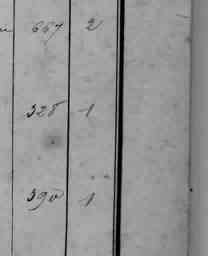 667 2
328 1
390 1